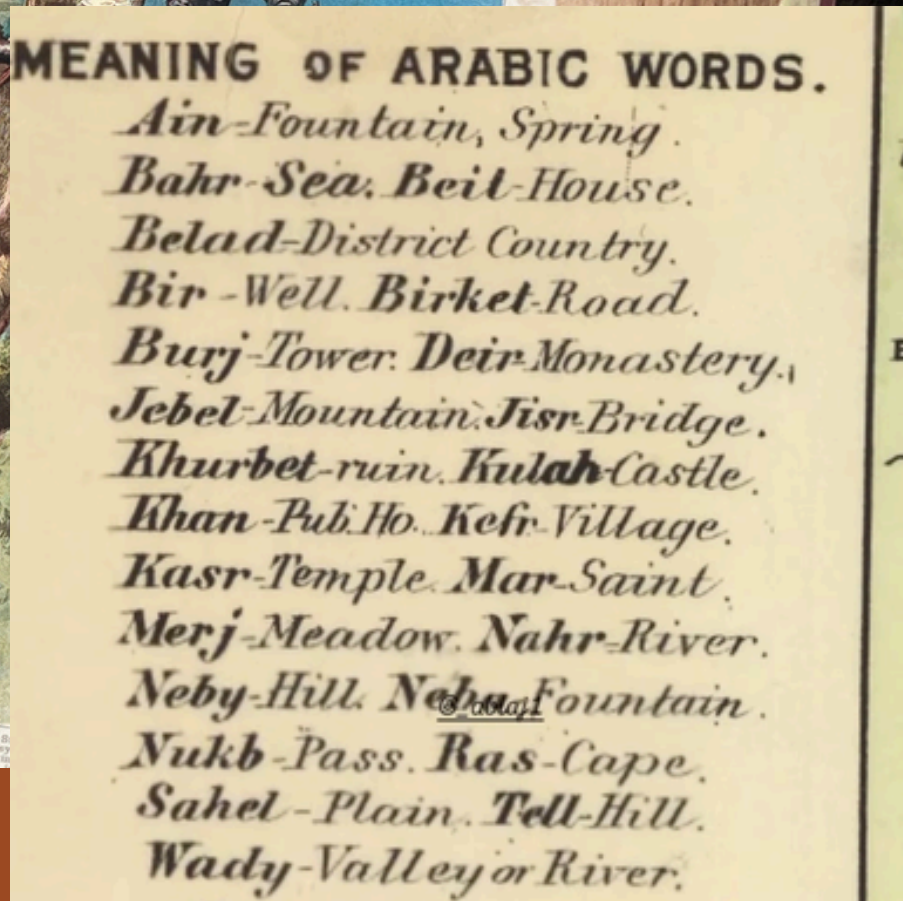 MEANING OF ARABIC WORDS.
Ain-Fountain, Spring.
Bahr-Sea. Beit-House.
Belad-District Country.
Bir-Well. Birket-Road.
Burj-Tower. Deir-Monastery.
Jebel-Mountain. Jisr-Bridge.
Khurbet-ruin. Kulah-Castle.
Khan-Pub. Ho. Kefr-Village.
Kasr-Temple. Mar-Saint.
Merj-Meadow. Nahr-River.
Neby-Hill. Fountain.
Nukb-Pass. Ras-Cape.
Sahel-Plain. Tell-Hill.
Wady-Valley or River.